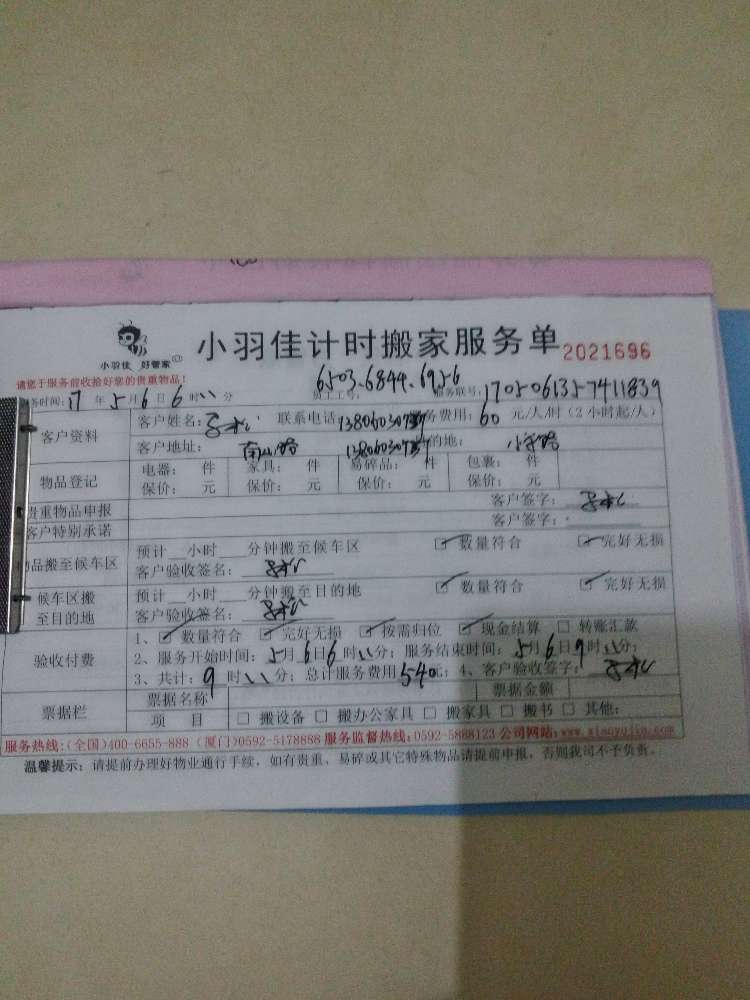 小羽佳 好管家
小羽佳计时搬家服务单 2021696
请您于服务前收拾好您的贵重物品!
务时间: 17 年 5 月 6 日 6 时 分 员工工号: 6503.6844.6956 服务联号: 1705061357411839
客户资料 客户姓名: 联系电话: 务费用: 60 元/人/时(2小时起/人)
客户地址: 南山路 的地:
物品登记 电器: 件 家具: 件 易碎品: 件 包裹: 件
保价: 元 保价: 元 保价: 元 保价: 元
贵重物品申报 客户签字:
客户特别承诺 客户签字:
物品搬至候车区 预计__小时___分钟搬至候车区 ☑数量符合 ☑完好无损
客户验收签名:
候车区搬至目的地 预计__小时___分钟搬至目的地 ☑数量符合 ☑完好无损
客户验收签名:
验收付费 1、☑数量符合 ☑完好无损 ☑按需归位 ☑现金结算 □ 转账汇款
2、服务开始时间: 5月6日6时 分; 服务结束时间: 5月6日9时 分;
3、共计: 9 时 分; 总计服务费用 540 元; 4、客户验收签字:
票据栏 票据名称 票据金额
项 目 □ 搬设备 □ 搬办公家具 □ 搬家具 □ 搬书 □ 其他:
服务热线:(全国)400-6655-888 (厦门)0592-5178888 服务监督热线:0592-5888123 公司网站:www.xiaoyujia.com
温馨提示: 请提前办理好物业通行手续, 如有贵重、易碎或其它特殊物品请提前申报, 否则我司不予负责。